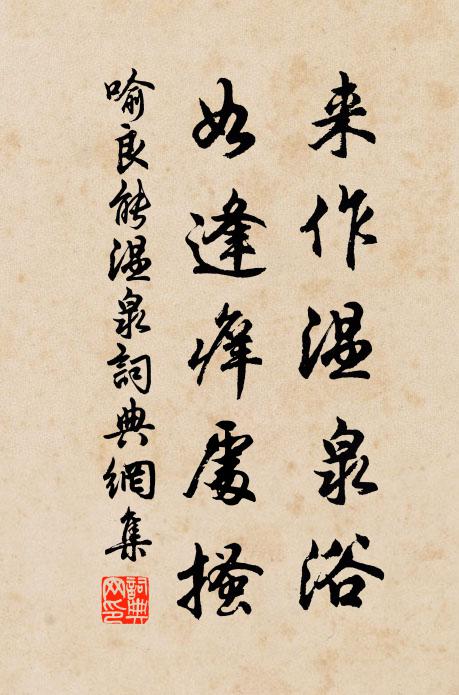 来作温泉浴
如逢痒處搔
喻良能温泉詞典網集
詞典网印